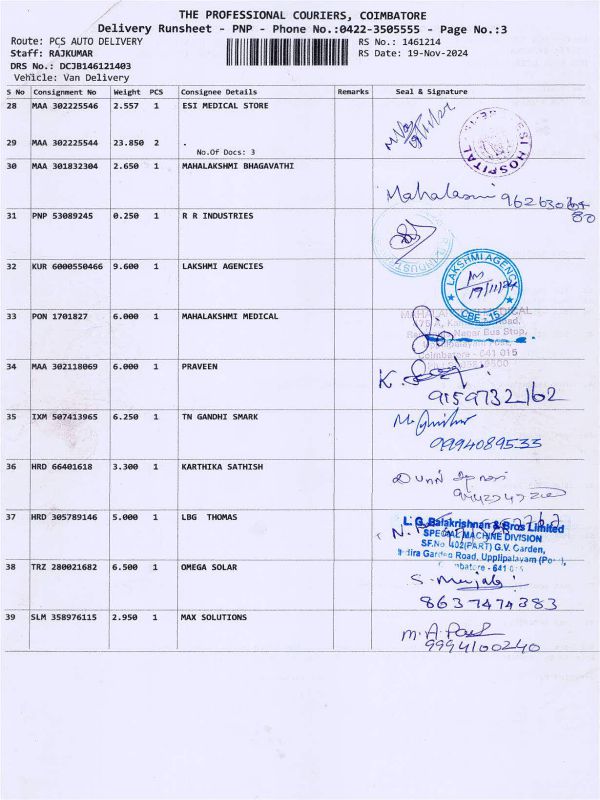 THE PROFESSIONAL COURIERS, COIMBATORE
Delivery Runsheet - PNP - Phone No.:0422-3505555 - Page No.:3
Route: PCS AUTO DELIVERY RS No.: 1461214
Staff: RAJKUMAR RS Date: 19-Nov-2024
DRS No.: DCJB146121403
Vehicle: Van Delivery
S No Consignment No Weight PCS Consignee Details Remarks Seal & Signature
28 MAA 302225546 2.557 1 ESI MEDICAL STORE
19/11/24
ESI HOSPITAL
29 MAA 302225544 23.850 2 .
No.Of Docs: 3
30 MAA 301832304 2.650 1 MAHALAKSHMI BHAGAVATHI
Mahalaxmi
31 PNP 53089245 0.250 1 R R INDUSTRIES
32 KUR 6000550466 9.600 1 LAKSHMI AGENCIES
LAKSHMI AGENC
19/11/24
CBE - 15
33 PON 1701827 6.000 1 MAHALAKSHMI MEDICAL
Bus Stop,
Coimbatore - 641 015
34 MAA 302118069 6.000 1 PRAVEEN
K.
9159732162
35 IXM 507413965 6.250 1 TN GANDHI SMARK
9994089533
36 HRD 66401618 3.300 1 KARTHIKA SATHISH
37 HRD 305789146 5.000 1 LBG THOMAS
L. G. Balakrishnan & Bros Limited
SPECIAL MACHINE DIVISION
SF.No. 402(PART) G.V. Garden,
Indira Garden Road, Upplipalayam (Po),
38 TRZ 280021682 6.500 1 OMEGA SOLAR
8637474383
39 SLM 358976115 2.950 1 MAX SOLUTIONS
M.A.Paul
9994100240